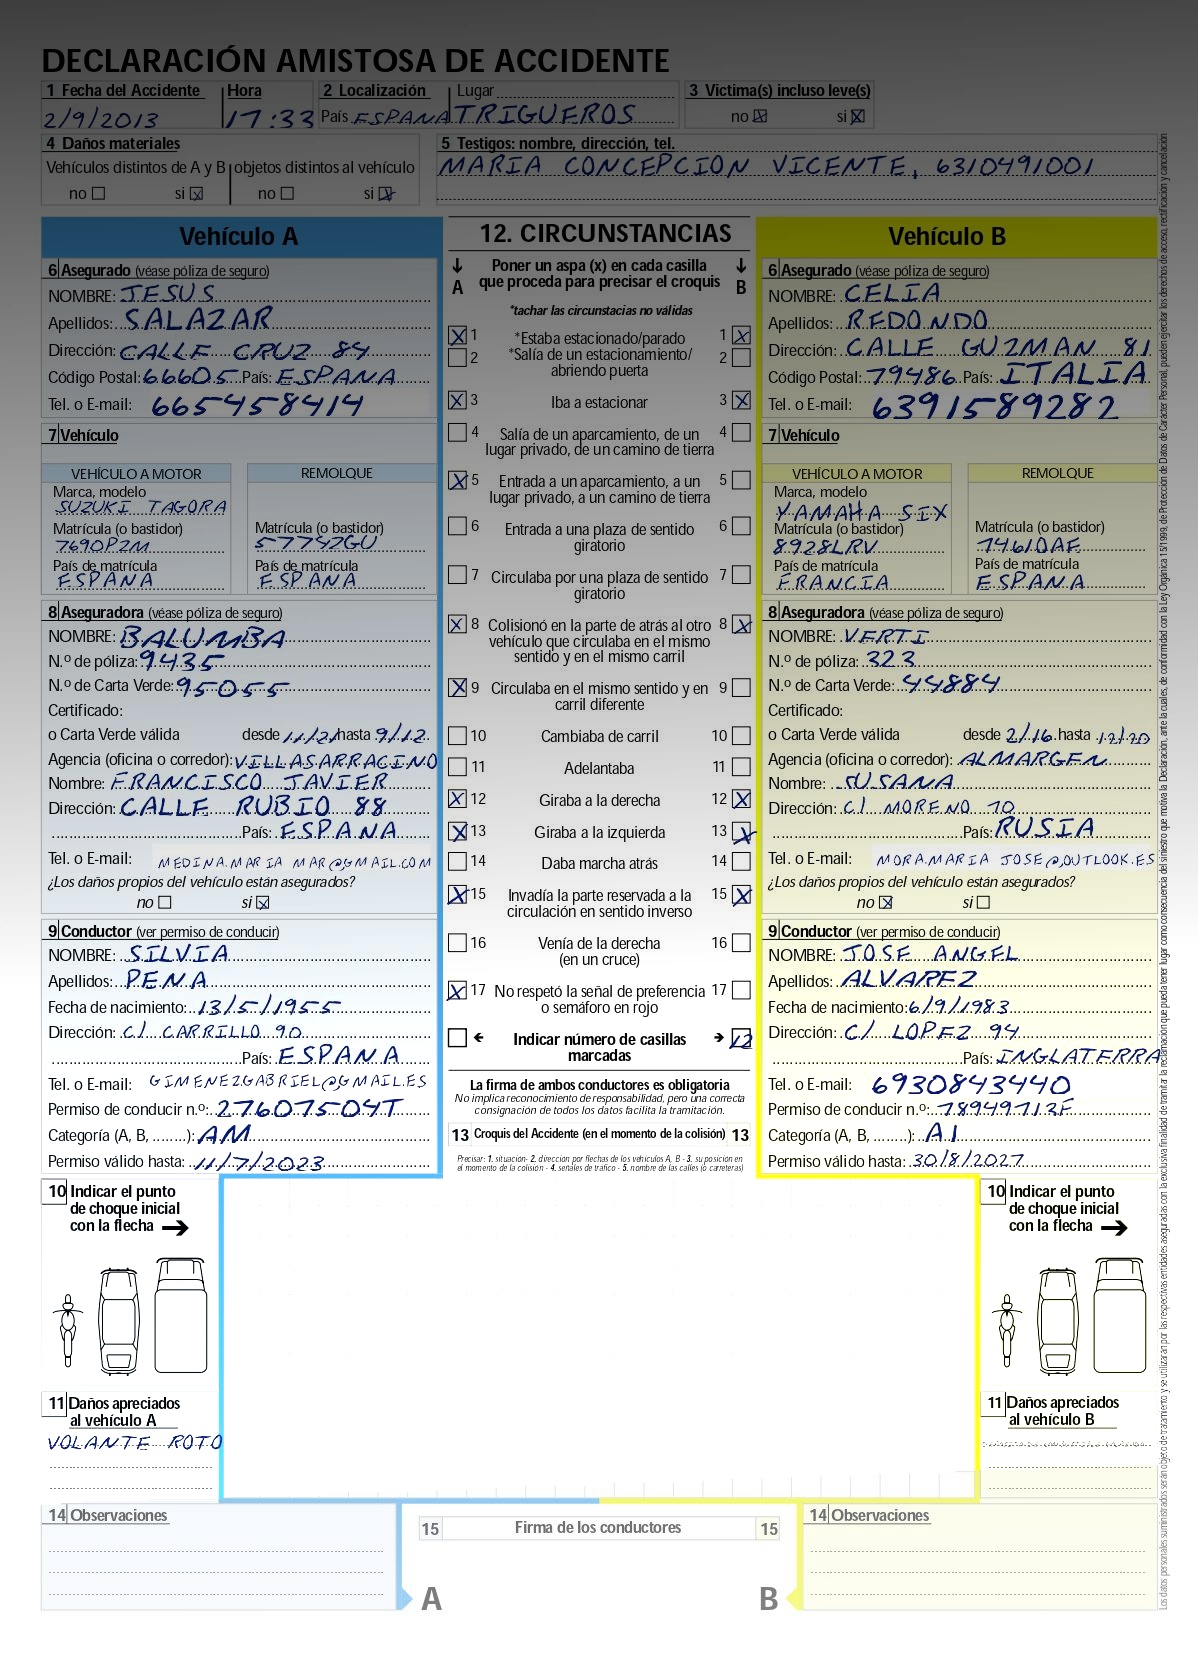 DECLARACIÓN AMISTOSA DE ACCIDENTE
1 Fecha del Accidente Hora 2 Localización Lugar 3 Victima(s) incluso leve(s)
2/9/2013 17:33 País ESPANA TRIGUEROS no si
4 Daños materiales
Vehículos distintos de A y B objetos distintos al vehículo
no si no si
5 Testigos: nombre, dirección, tel.
MARIA CONCEPCION VICENTE, 6310491001
Vehículo A
6 Asegurado (véase póliza de seguro)
NOMBRE: JESUS
Apellidos: SALAZAR
Dirección: CALLE CRUZ 84
Código Postal: 66605 País: ESPANA
Tel. o E-mail: 665458414
7 Vehículo
VEHÍCULO A MOTOR REMOLQUE
Marca, modelo
SUZUKI TAGORA
Matrícula (o bastidor) Matrícula (o bastidor)
7690PZM 57742GU
País de matrícula País de matrícula
ESPANA ESPANA
8 Aseguradora (véase póliza de seguro)
NOMBRE: BALUMBA
N.º de póliza: 9435
N.º de Carta Verde: 95055
Certificado:
o Carta Verde válida desde 11/21 hasta 9/12
Agencia (oficina o corredor): VILLASARRACINO
Nombre: FRANCISCO JAVIER
Dirección: CALLE RUBIO 88
País: ESPANA
Tel. o E-mail: MEDINA.MARIA MAR@GMAIL.COM
¿Los daños propios del vehículo están asegurados?
no si
9 Conductor (ver permiso de conducir)
NOMBRE: SILVIA
Apellidos: PENA
Fecha de nacimiento: 13/5/1955
Dirección: C/ CARRILLO 90
País: ESPANA
Tel. o E-mail: GIMENEZGABRIEL@GMAIL.ES
Permiso de conducir n.º: 27607504T
Categoría (A, B, ........): AM
Permiso válido hasta: 11/7/2023
12. CIRCUNSTANCIAS
A Poner un aspa (x) en cada casilla que proceda para precisar el croquis B
*tachar las circunstacias no válidas
1 *Estaba estacionado/parado 1
2 *Salía de un estacionamiento/ 2
abriendo puerta
3 Iba a estacionar 3
4 Salía de un aparcamiento, de un 4
lugar privado, de un camino de tierra
5 Entrada a un aparcamiento, a un 5
lugar privado, a un camino de tierra
6 Entrada a una plaza de sentido 6
giratorio
7 Circulaba por una plaza de sentido 7
giratorio
8 Colisionó en la parte de atrás al otro 8
vehículo que circulaba en el mismo
sentido y en el mismo carril
9 Circulaba en el mismo sentido y en 9
carril diferente
10 Cambiaba de carril 10
11 Adelantaba 11
12 Giraba a la derecha 12
13 Giraba a la izquierda 13
14 Daba marcha atrás 14
15 Invadía la parte reservada a la 15
circulación en sentido inverso
16 Venía de la derecha 16
(en un cruce)
17 No respetó la señal de preferencia 17
o semáforo en rojo
Indicar número de casillas 12
marcadas
La firma de ambos conductores es obligatoria
No implica reconocimiento de responsabilidad, pero una correcta
consignación de todos los datos facilita la tramitación.
13 Croquis del Accidente (en el momento de la colisión) 13
Precisar: 1. situación- 2. dirección por flechas de los vehículos A, B - 3. su posición en
el momento de la colisión - 4. señales de tráfico - 5. nombre de las calles (o carreteras)
Vehículo B
6 Asegurado (véase póliza de seguro)
NOMBRE: CELIA
Apellidos: REDONDO
Dirección: CALLE GUZMAN 81
Código Postal: 79486 País: ITALIA
Tel. o E-mail: 6391589282
7 Vehículo
VEHÍCULO A MOTOR REMOLQUE
Marca, modelo
YAMAHA SIX
Matrícula (o bastidor) Matrícula (o bastidor)
8928LRV 7461DAE
País de matrícula País de matrícula
FRANCIA ESPANA
8 Aseguradora (véase póliza de seguro)
NOMBRE: VERTI
N.º de póliza: 323
N.º de Carta Verde: 44884
Certificado:
o Carta Verde válida desde 2/16 hasta 12/20
Agencia (oficina o corredor): ALMARGEN
Nombre: SUSANA
Dirección: C/ MORENO 70
País: RUSIA
Tel. o E-mail: MORA.MARIA JOSE@OUTLOOK.ES
¿Los daños propios del vehículo están asegurados?
no si
9 Conductor (ver permiso de conducir)
NOMBRE: JOSE ANGEL
Apellidos: ALVAREZ
Fecha de nacimiento: 6/9/1983
Dirección: C/ LOPEZ 94
País: INGLATERRA
Tel. o E-mail: 6930843440
Permiso de conducir n.º: 78949713F
Categoría (A, B, ........): A1
Permiso válido hasta: 30/8/2027
10 Indicar el punto
de choque inicial
con la flecha
11 Daños apreciados
al vehículo A
VOLANTE ROTO
10 Indicar el punto
de choque inicial
con la flecha
11 Daños apreciados
al vehículo B
14 Observaciones
15 Firma de los conductores 15
A B
14 Observaciones